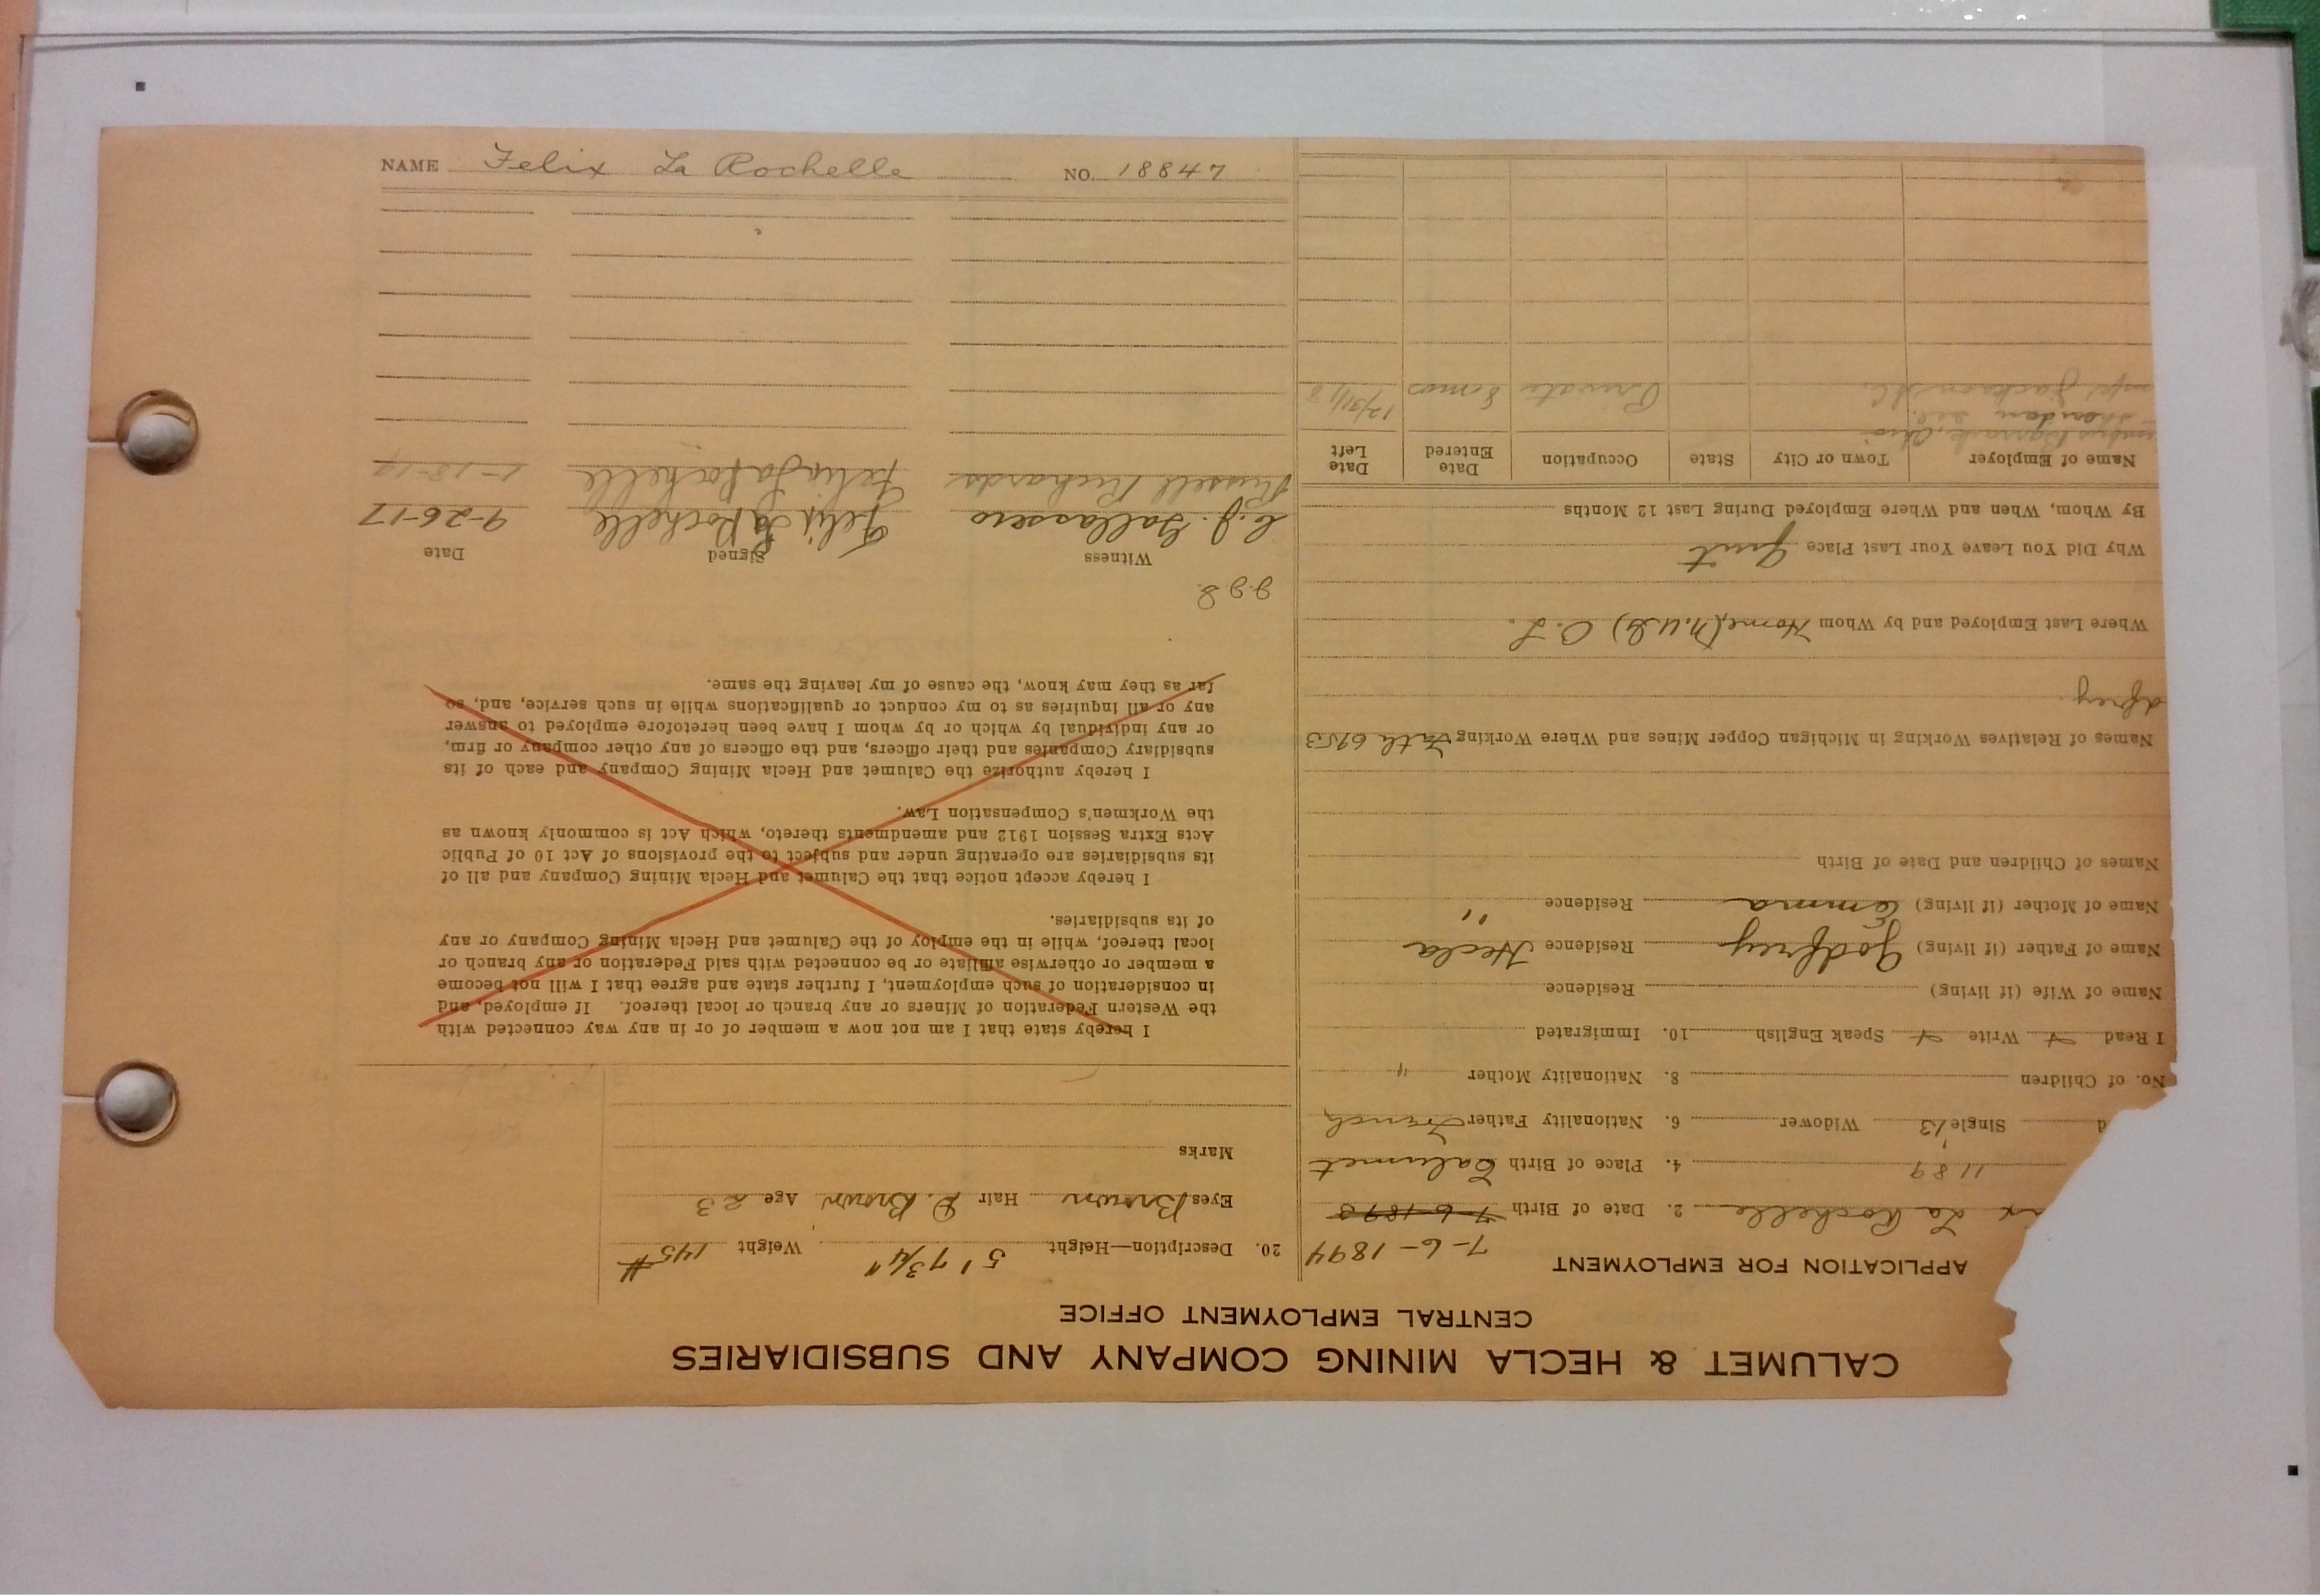 NAME Felix La Rochelle NO. 18847
CALUMET & HECLA MINING COMPANY AND SUBSIDIARIES
CENTRAL EMPLOYMENT OFFICE
APPLICATION FOR EMPLOYMENT
7-6-1894
La Rochelle 2. Date of Birth 7-6-1893
1189 4. Place of Birth Calumet
d Single 13 Widower 6. Nationality Father French
No. of Children 8. Nationality Mother "
I Read Write Speak English 10. Immigrated
Name of Wife (if living) Residence
Name of Father (if living) Godfrey Residence Hecla
Name of Mother (if living) Emma Residence "
Names of Children and Date of Birth
Names of Relatives Working in Michigan Copper Mines and Where Working Fath 6953
dfrey.
Where Last Employed and by Whom Home (N.U.S) O.L.
Why Did You Leave Your Last Place Quit
By Whom, When and Where Employed During Last 12 Months
Name of Employer Town or City State Occupation Date Entered Date Left
Barracks, Ohio
Jackson S.C. Private 8 mos 12/31/18
20. Description—Height 5' 7 3/4" Weight 145#
Eyes Brown Hair D. Brown Age 23
Marks
I hereby state that I am not now a member of or in any way connected with
the Western Federation of Miners or any branch or local thereof. If employed, and
in consideration of such employment, I further state and agree that I will not become
a member or otherwise affiliate or be connected with said Federation or any branch or
local thereof, while in the employ of the Calumet and Hecla Mining Company or any
of its subsidiaries.
I hereby accept notice that the Calumet and Hecla Mining Company and all of
its subsidiaries are operating under and subject to the provisions of Act 10 of Public
Acts Extra Session 1912 and amendments thereto, which Act is commonly known as
the Workmen's Compensation Law.
I hereby authorize the Calumet and Hecla Mining Company and each of its
subsidiary Companies and their officers, and the officers of any other company or firm,
or any individual by which or by whom I have been heretofore employed to answer
any or all inquiries as to my conduct or qualifications while in such service, and, so
far as they may know, the cause of my leaving the same.
Witness Signed Date
C.J. Gallassero Felix La Rochelle 9-26-17
Russell Richards Felix La Rochelle 1-18-19